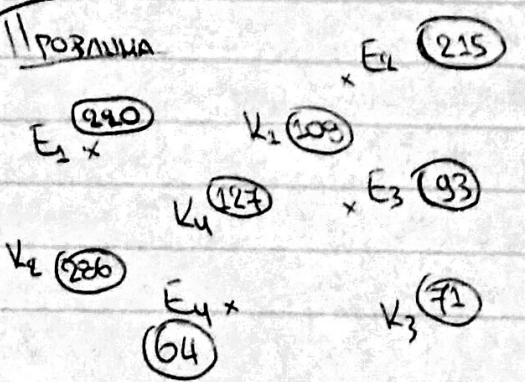 Прозлина
E2 215
E1 220
K1 109
K4 127
E3 93
K2 286
E4
K3 71
64